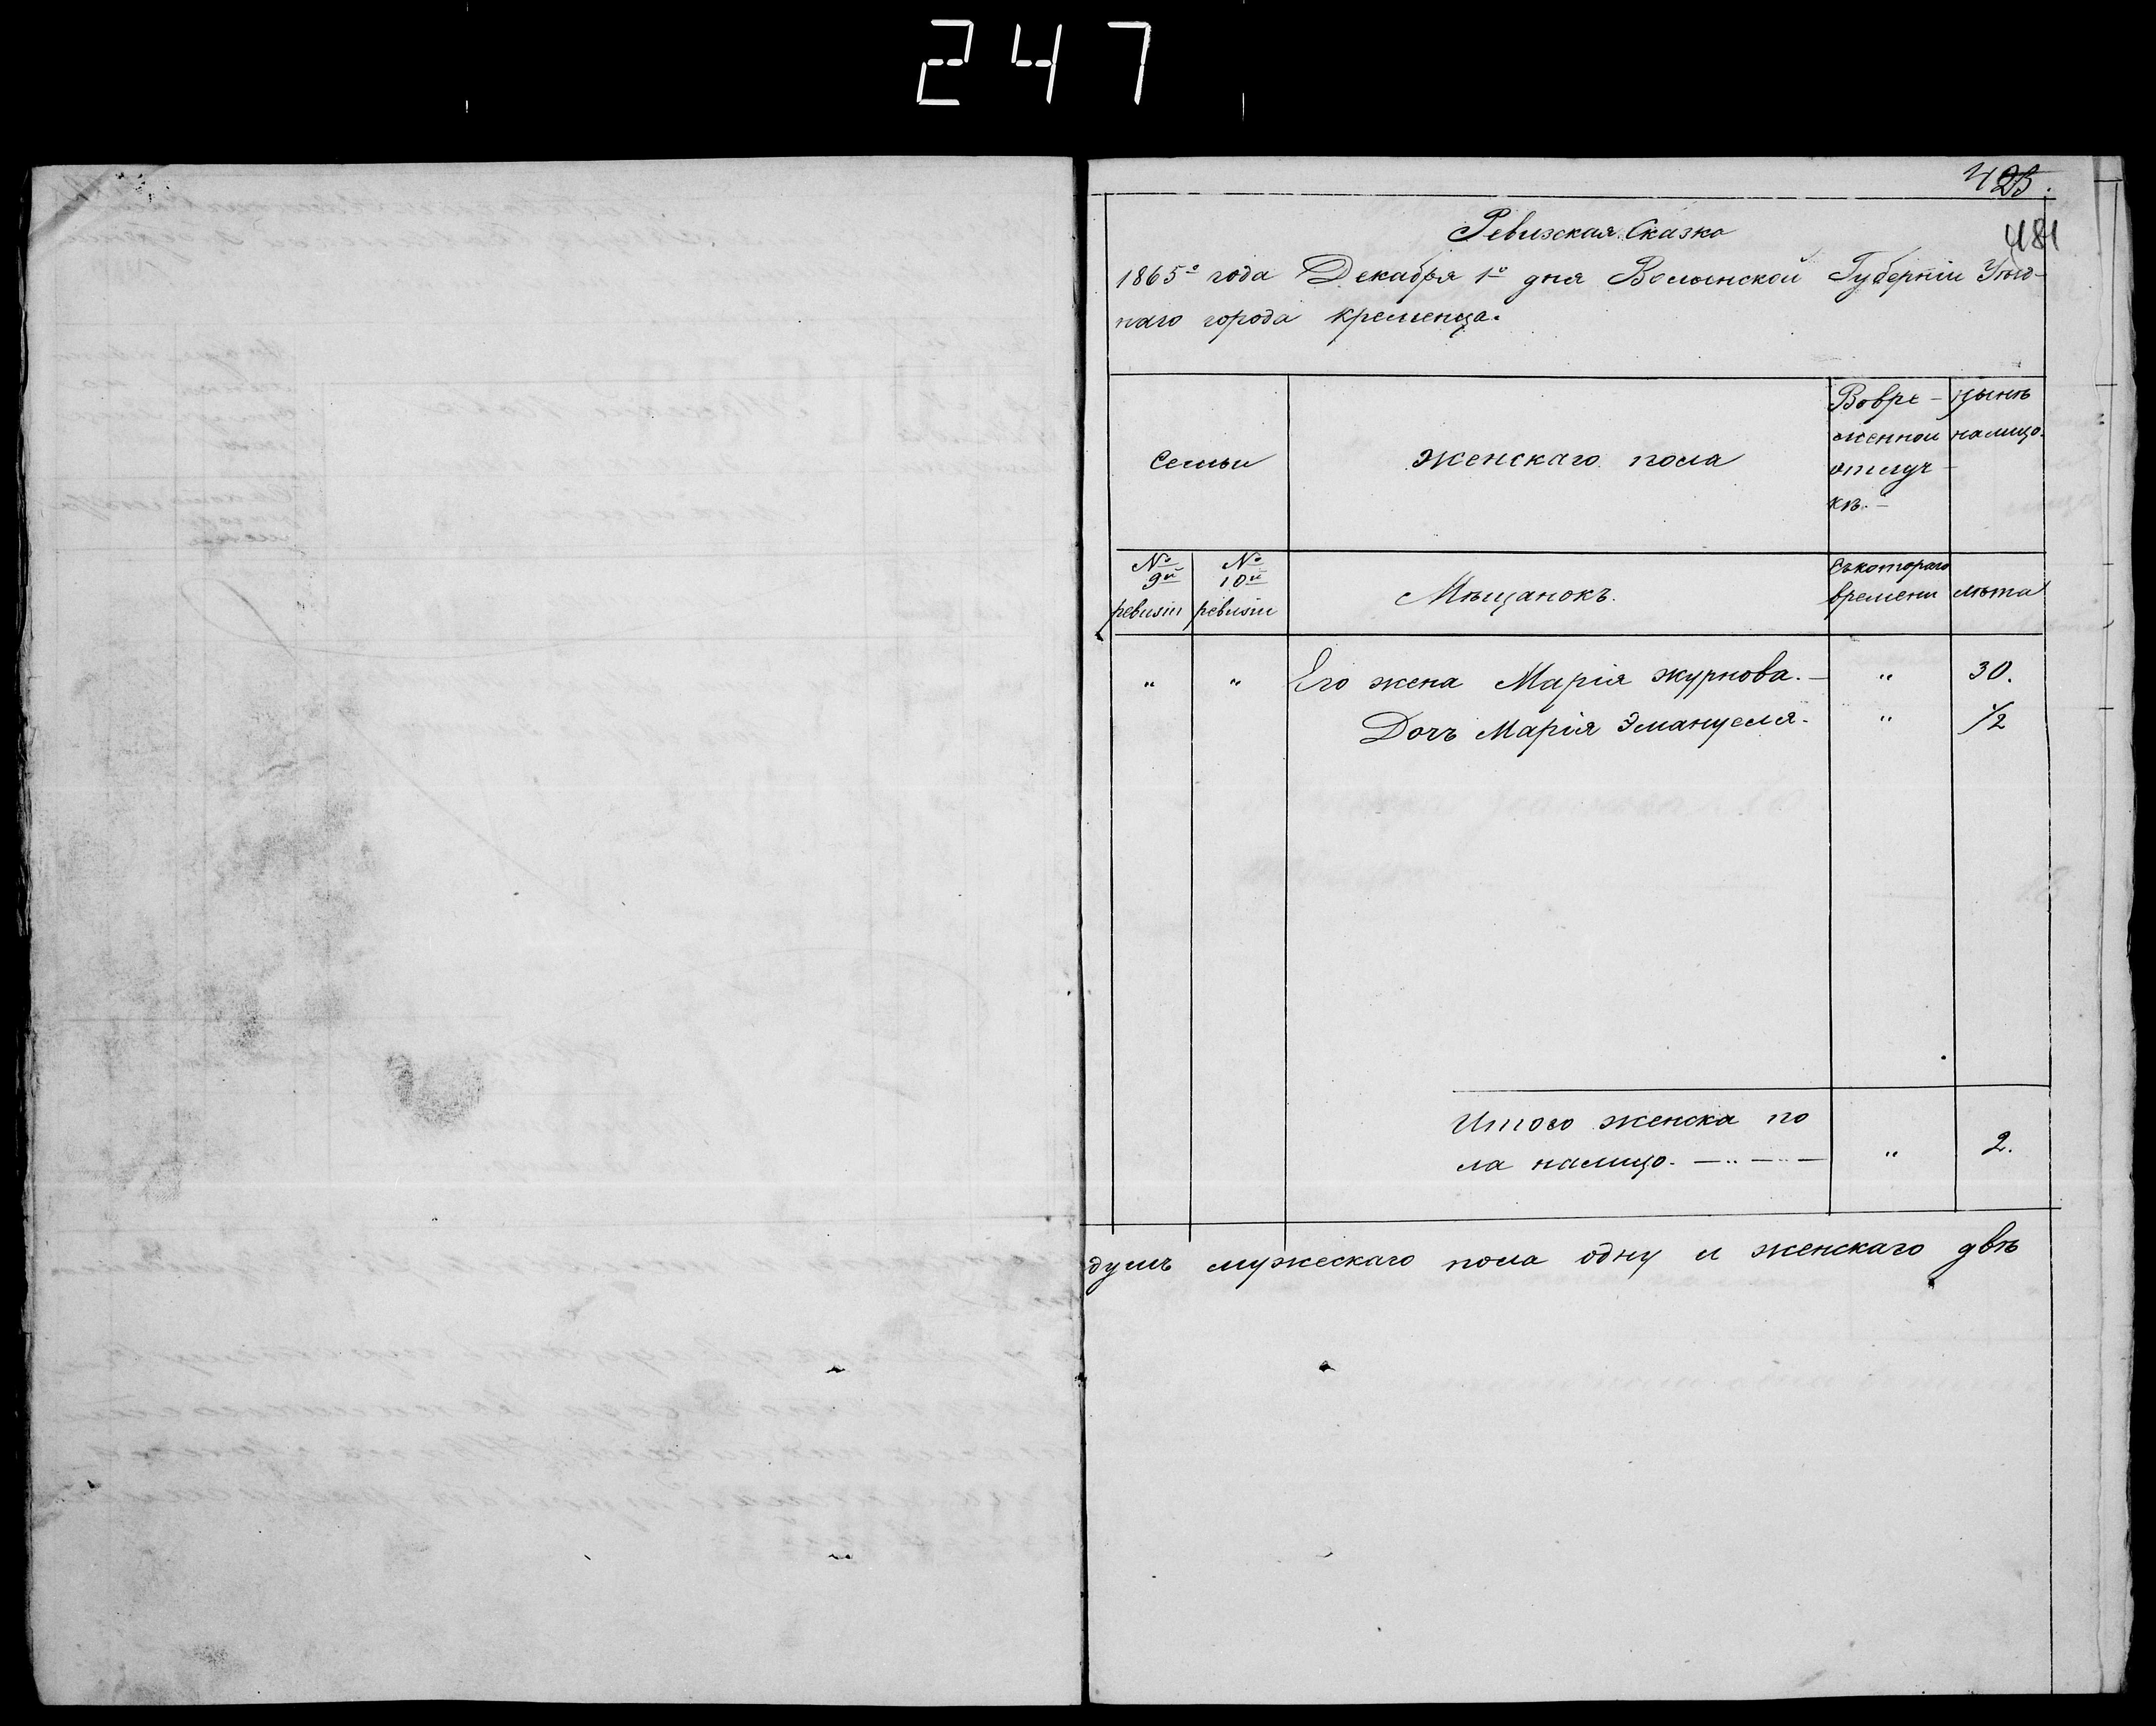 247
425.
481
Ревизская Сказка
1865го года Декабря 1го дня Волынской Губерніи Уѣзд-
наго города Кременца.
Семьи
Женскаго пола
Вовре-
менной
отлуч-
кѣ.-
Нынѣ
налицо.
№ 9й ревизіи
№ 10й ревизіи
Мѣщанокъ.
Съкотораго
времени
лѣта
" " Его жена Марія Журнова.- " 30.
Дочь Марія Эмануеля. " 1/2
Итого женска по
ла налицо. - " - " - " 2.
душъ мужескаго пола одну и женскаго двѣ